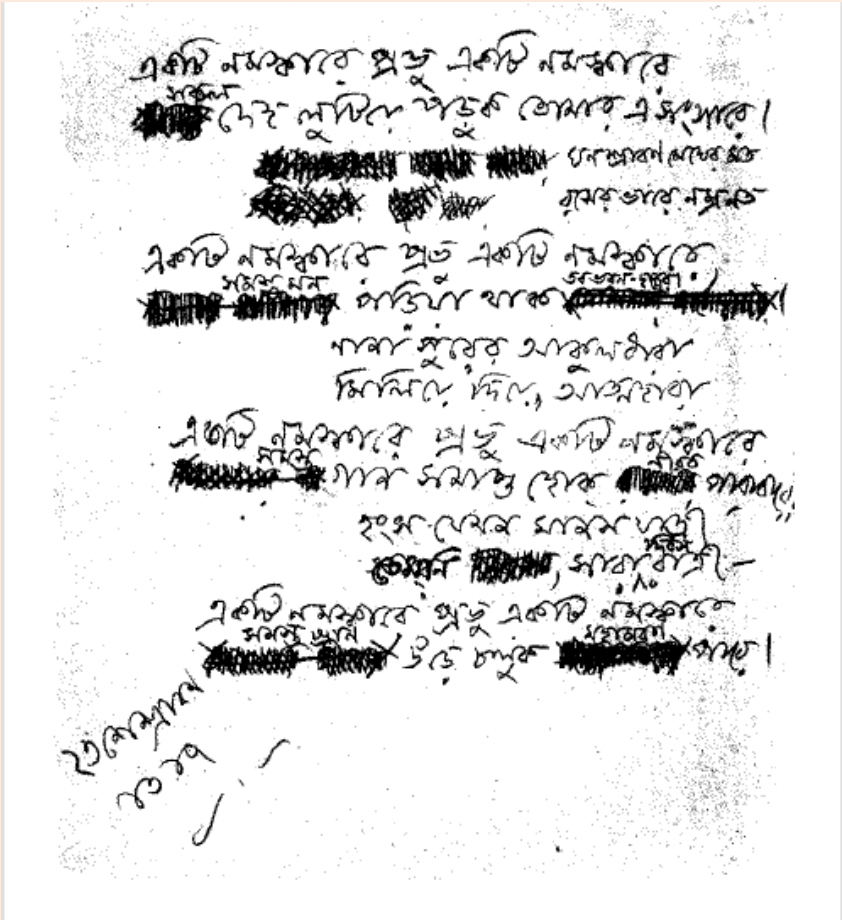 একটি নমস্কারে প্রভু একটি নমস্কারে
সকল
দেহ লুটিয়ে পড়ুক তোমার এ সংসারে।
ঘন শ্রাবণ মেঘের মত
রসের ভারে নম্র নত
একটি নমস্কারে প্রভু একটি নমস্কারে
সমস্ত মন
পড়িয়া থাক
নানা সুরের আকুলধারা
মিলিয়ে দিয়ে, আত্মহারা
একটি নমস্কারে প্রভু একটি নমস্কারে
সমস্ত নীরব
গান সমাপ্ত হোক
হংস যেমন মানস যাত্রী
দিবস
তেমনি সারা রাত্রি
একটি নমস্কারে প্রভু একটি নমস্কারে
সমস্ত প্রাণ মহামরণ
উড়ে চলুক পারে।
২৩শে শ্রাবণ
১৩১৭